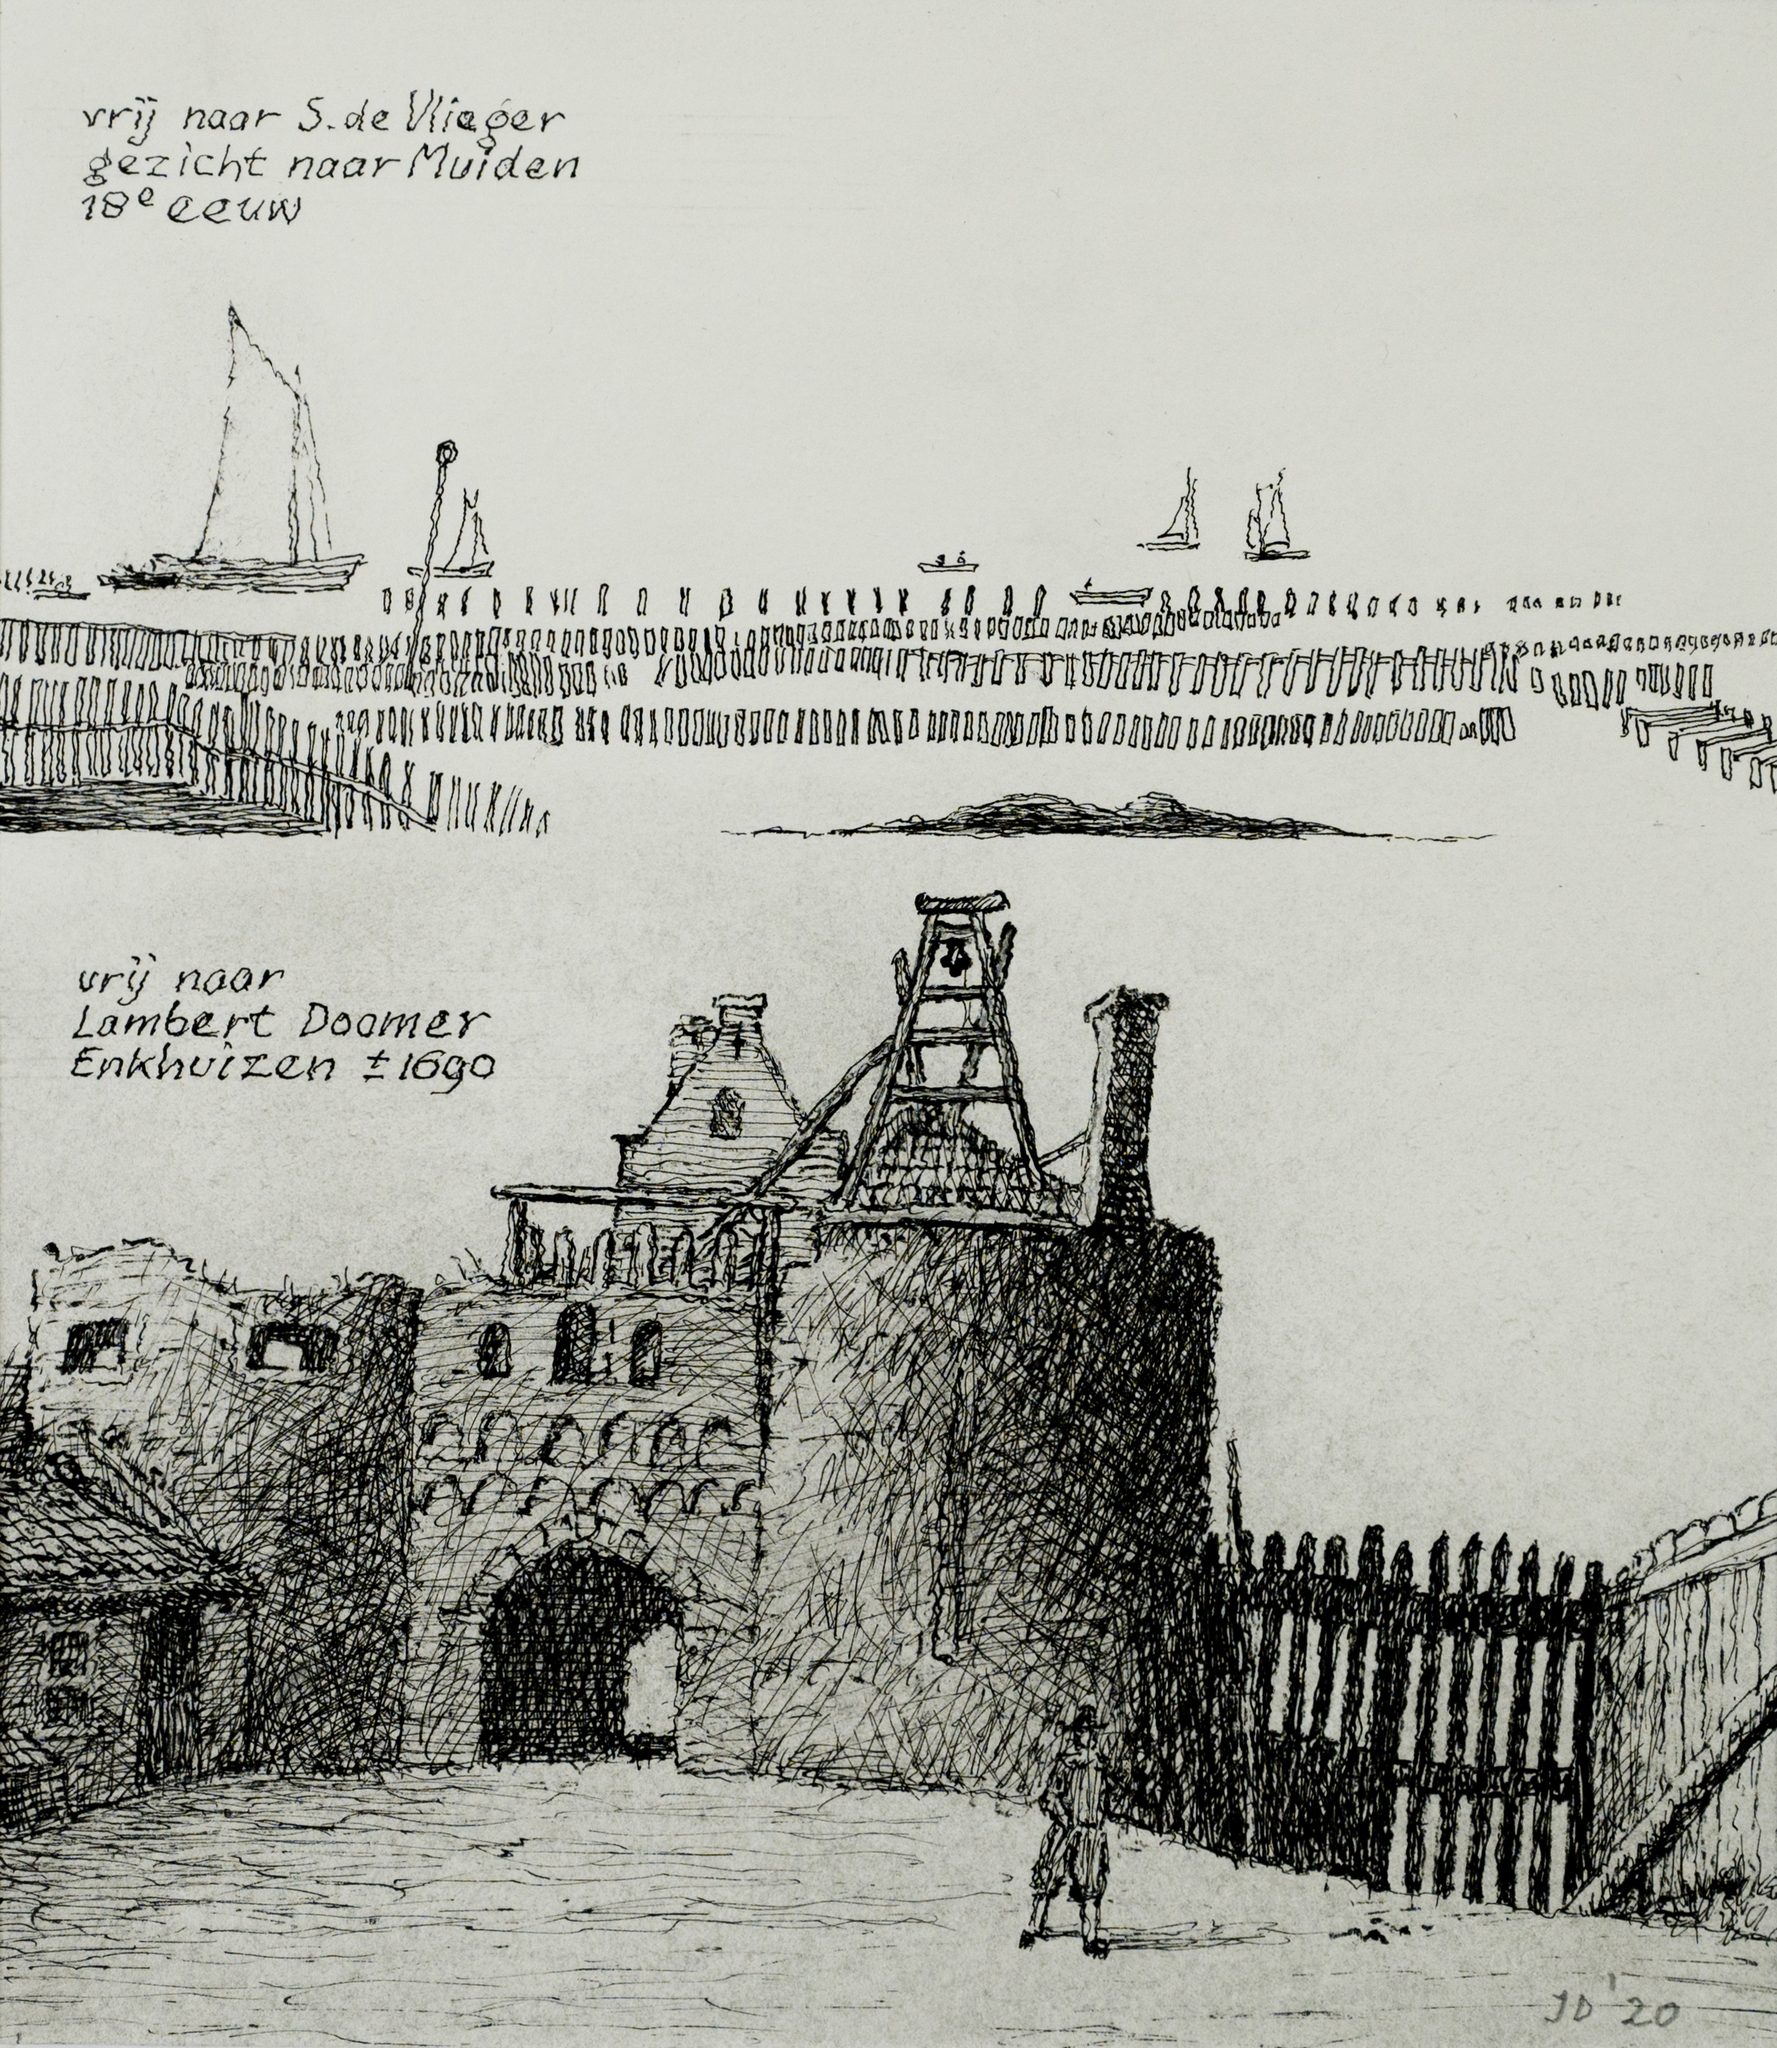 vrij naar S. de Vlieger
gezicht naar Muiden
18e eeuw
vrij naar
Lambert Doomer
Enkhuizen ± 1690
JD '20